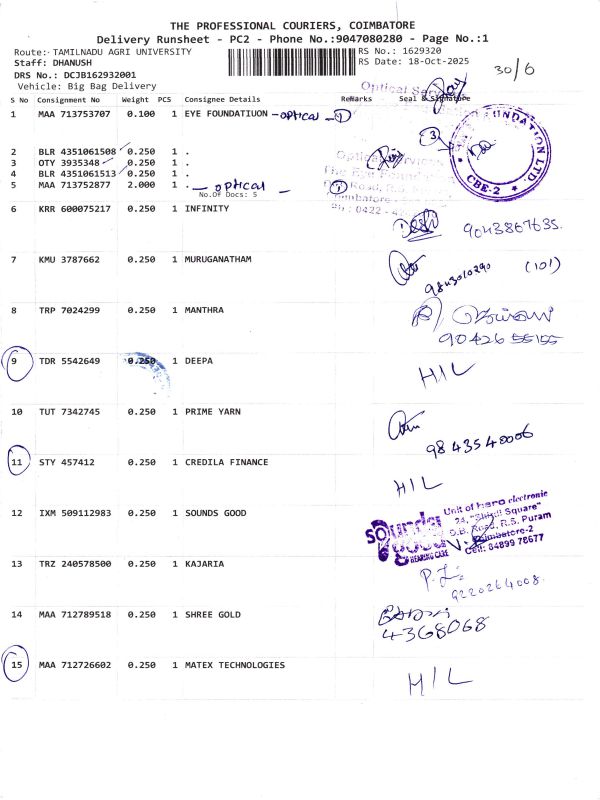 THE PROFESSIONAL COURIERS, COIMBATORE
Delivery Runsheet - PC2 - Phone No.:9047080280 - Page No.:1
Route: TAMILNADU AGRI UNIVERSITY RS No.: 1629320
Staff: DHANUSH RS Date: 18-Oct-2025
DRS No.: DCJB162932001 30/6
Vehicle: Big Bag Delivery
Optical Services
S No Consignment No Weight PCS Consignee Details Remarks Seal & Signature
1 MAA 713753707 0.100 1 EYE FOUNDATIUON - optical - 1
3
FOUNDATION LTD.
CBE-2
2 BLR 4351061508 0.250 1 .
Optical Services
3 OTY 3935348 0.250 1 .
The Eye Foundation
4 BLR 4351061513 0.250 1 .
5 MAA 713752877 2.000 1 . - optical - 1
Road, R.S.
No.Of Docs: 5
Coimbatore
Ph : 0422 - 4
6 KRR 600075217 0.250 1 INFINITY
9043867635.
7 KMU 3787662 0.250 1 MURUGANATHAM
9843010290 (101)
8 TRP 7024299 0.250 1 MANTHRA
90426 55155
9 TDR 5542649 0.250 1 DEEPA
H/L
10 TUT 7342745 0.250 1 PRIME YARN
9843540006
11 STY 457412 0.250 1 CREDILA FINANCE
H/L
12 IXM 509112983 0.250 1 SOUNDS GOOD
sounds good
HEARING CARE
Unit of hero electronic
24, "Shindi Square"
D.B. Road, R.S. Puram
Coimbatore-2
Cell: 84899 78677
13 TRZ 240578500 0.250 1 KAJARIA
9220264008.
14 MAA 712789518 0.250 1 SHREE GOLD
4368068
15 MAA 712726602 0.250 1 MATEX TECHNOLOGIES
H/L